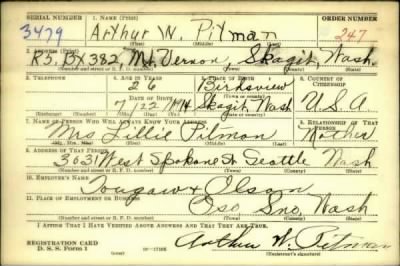 SERIAL NUMBER 1. NAME (Print) ORDER NUMBER
3479 Arthur W. Pitman 247
(First) (Middle) (Last)
2. ADDRESS (Print)
R5, Bx 382, Mt. Vernon, Skagit, Wash.
(Number and street or R. F. D. number) (Town) (County) (State)
3. TELEPHONE 4. AGE IN YEARS 5. PLACE OF BIRTH 6. COUNTRY OF CITIZENSHIP
26 Birdsview
DATE OF BIRTH (Town or county)
7 22 1914 Skagit Wash U.S.A.
(Exchange) (Number) (Mo.) (Day) (Yr.) (State or country)
7. NAME OF PERSON WHO WILL ALWAYS KNOW YOUR ADDRESS 8. RELATIONSHIP OF THAT PERSON
Mrs Lillie Pitman Mother
(Mr., Mrs., Miss) (First) (Middle) (Last)
9. ADDRESS OF THAT PERSON
3631 West Spokane St Seattle Wash
(Number and street or R. F. D. number) (Town) (County) (State)
10. EMPLOYER'S NAME
Olson
11. PLACE OF EMPLOYMENT OR BUSINESS
Oso Sno. Wash
(Number and street or R. F. D. number) (Town) (County) (State)
I AFFIRM THAT I HAVE VERIFIED ABOVE ANSWERS AND THAT THEY ARE TRUE.
REGISTRATION CARD
D. S. S. Form 1 Arthur W. Pitman
(Registrant's signature)